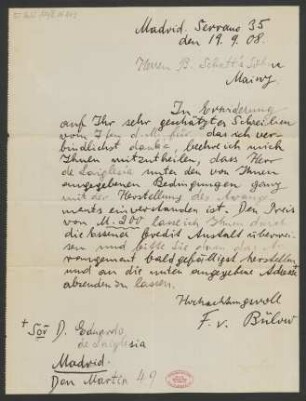 Madrid. Serrano 35
den 19. 9. 08.
Herren B. Schott's Söhne
Mainz
In Erwiderung
auf Ihr sehr geschätztes Schreiben
vom 7ten d. M., für das ich ver-
bindlichst danke, beehre ich mich
Ihnen mitzutheilen, dass Herr
de Laiglesia unter den von Ihnen
angegebenen Bedingungen ganz
mit der Herstellung des Arrange-
ments einverstanden ist. Den Preis
von M. 200 lasse ich Ihnen durch
die Essener Credit Anstalt überwei-
sen und bitte Sie dann das Ar-
rangement baldgefälligst herstellen
und an die unten angegebene Adresse
absenden zu lassen.
Hochachtungsvoll
F. v. Bülow
+ Sor D. Eduardo
de Laiglesia
Madrid.
Don Martin 49